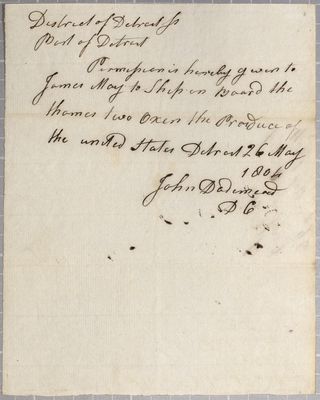 District of Detroit Ss
Port of Detroit
Permission is hereby given to
James May to Ship on Board the
thames two Oxen the Produce of
the united States Detroit 26 May
1804
John Dodemead
D C